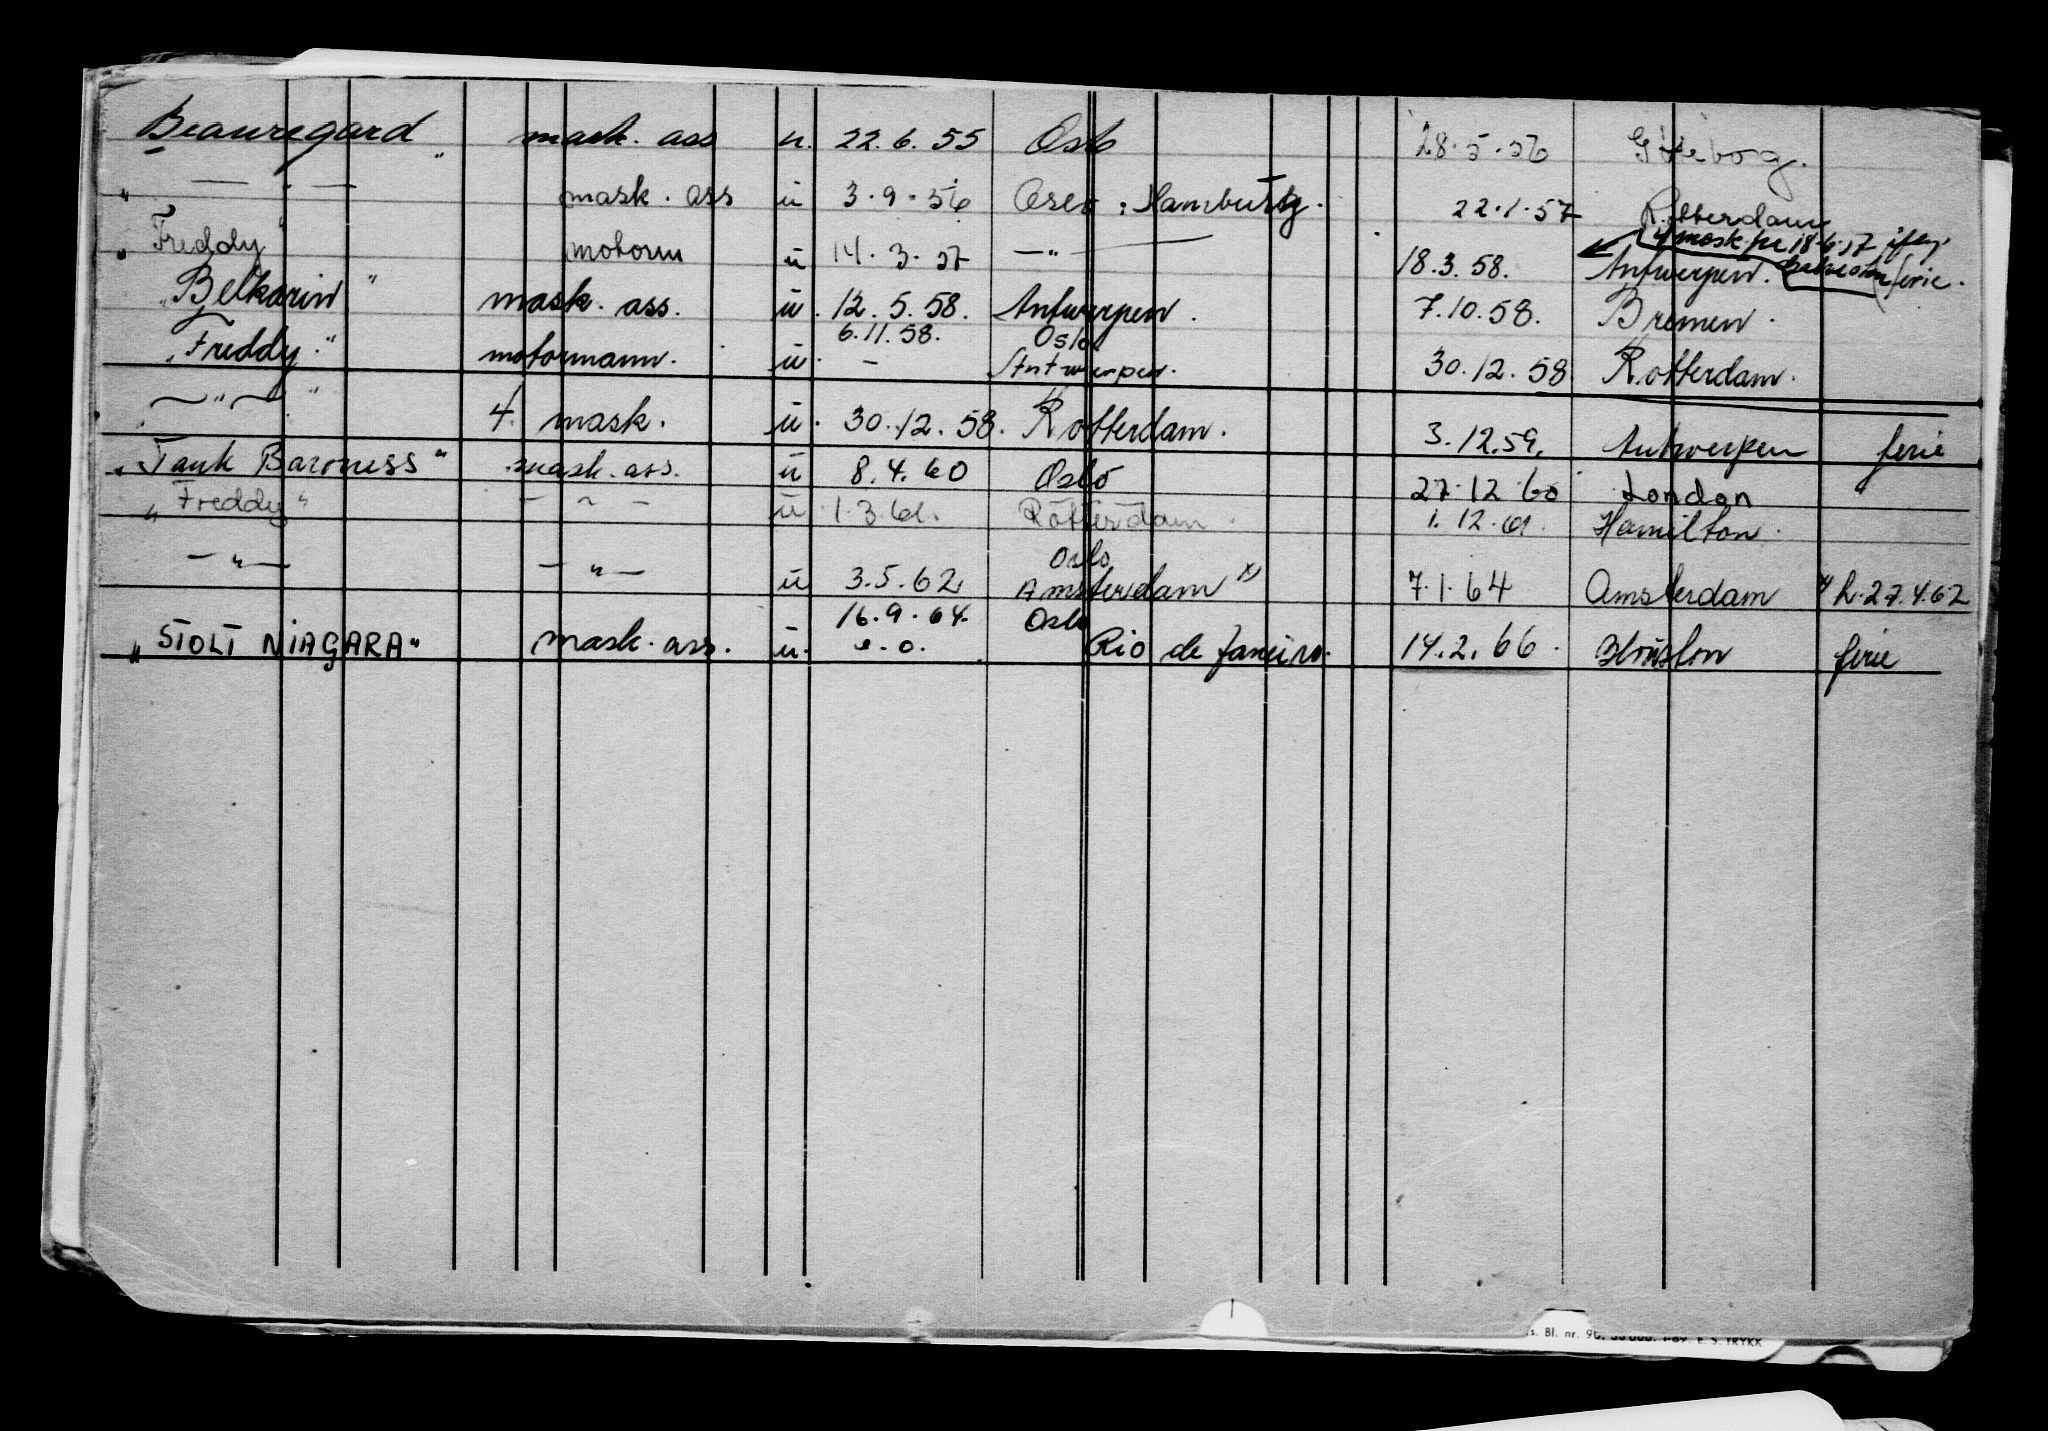 Beauregard " mask. ass u. 22.6.55 Oslo 28.5.56 Göteborg.
" — " — mask. ass u 3.9.56 Oslo : Hamburg. 22.1.57 Rotterdam
4 mask fra 18.6.57
" Freddy " motorm u 14.3.57 — " — 18.3.58. Antwerpen. ferie.
" Belkarin " mask. ass. u. 12.5.58. Antwerpen. 7.10.58. Bremen.
6.11.58. Oslo
" Freddy. " motormann. u. – Antwerpen. 30.12.58 Rotterdam.
— " — " 4. mask. u. 30.12.58. Rotterdam. 3.12.59. Antwerpen ferie
" Tank Baroness " mask. ass. u 8.4.60 Oslo 27.12.60 London
" Freddy " — " — u 1.3.61. Rotterdam. 1.12.61. Hamilton.
Oslo
— " — — " — u 3.5.62 Amsterdam x) 7.1.64 Amsterdam x) h. 27.4.62
16.9.64. Oslo
" STOLT NIAGARA " mask. ass. u. e.o. Rio de Janeiro. 14.2.66. Houston ferie
s. Bl. nr. 90. E. S. TRYKK